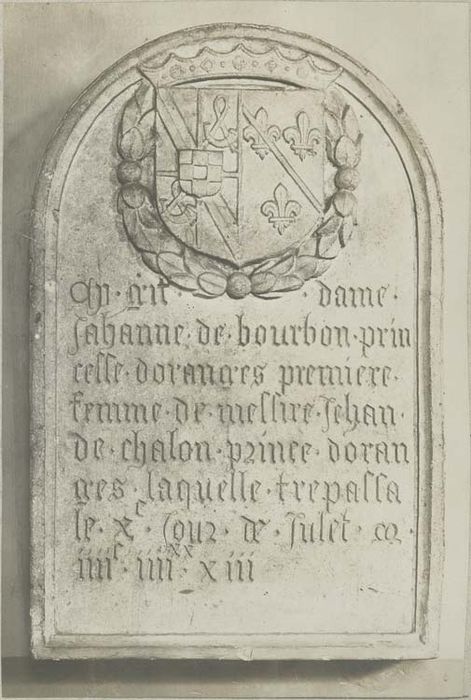 Cy · git · dame ·
Jahanne · de · bourbon · prin
cesse · doranges premiere ·
femme · de · messire · Jehan ·
de · chalon · prince · doran
ges · laquelle · trepassa
le · xᵉ · Jour · de · Julet ·
iiiiᶜ · iiiiˣˣ · xiii